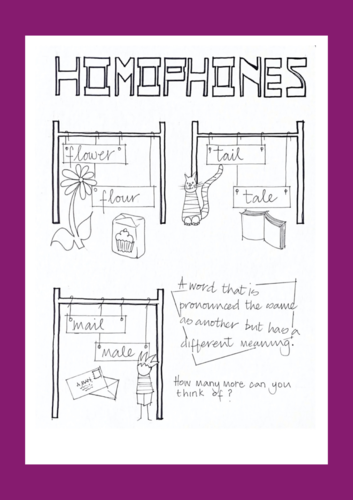 HOMOPHONES
flower
flour
tail
tale
mail
male
A word that is
pronounced the same
as another but has a
different meaning.
How many more can you
think of?